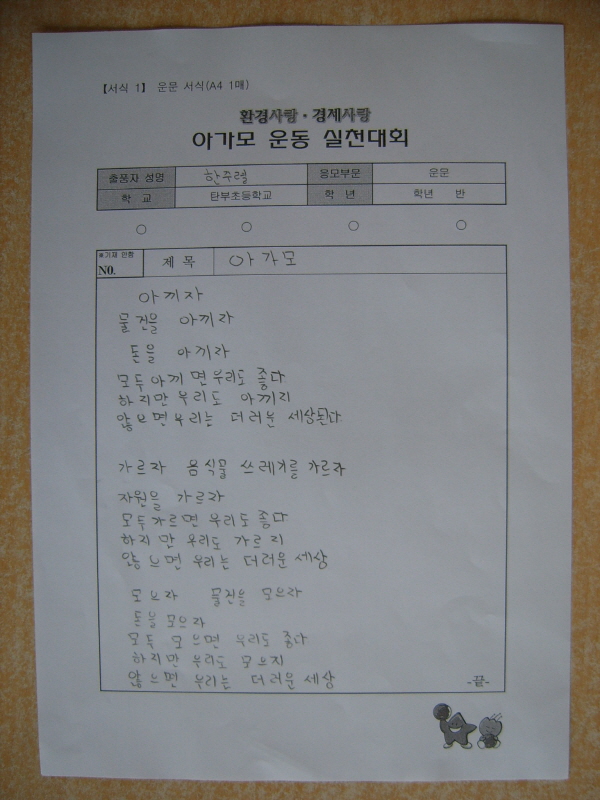 【서식 1】 운문 서식(A4 1매)
환경사랑·경제사랑
아가모 운동 실천대회
출품자 성명 한주렬 응모부문 운문
학 교 탄부초등학교 학 년 학년 반
※기재 안함
NO. 제 목 아가모
아끼자
물건을 아끼라
돈을 아끼라
모두아끼면우리도 좋다
하지만 우리도 아끼지
않으면우리는 더러운 세상된다
가르자 음식물 쓰레기를 가르자
자원을 가르라
모두가르면 우리도 좋다
하지만 우리도 가르지
않으면 우리는 더러운 세상
모으라 물건을 모으라
돈을 모으라
모두 모으면 우리도 좋다
하지만 우리도 모으지
않으면 우리는 더러운 세상
-끝-